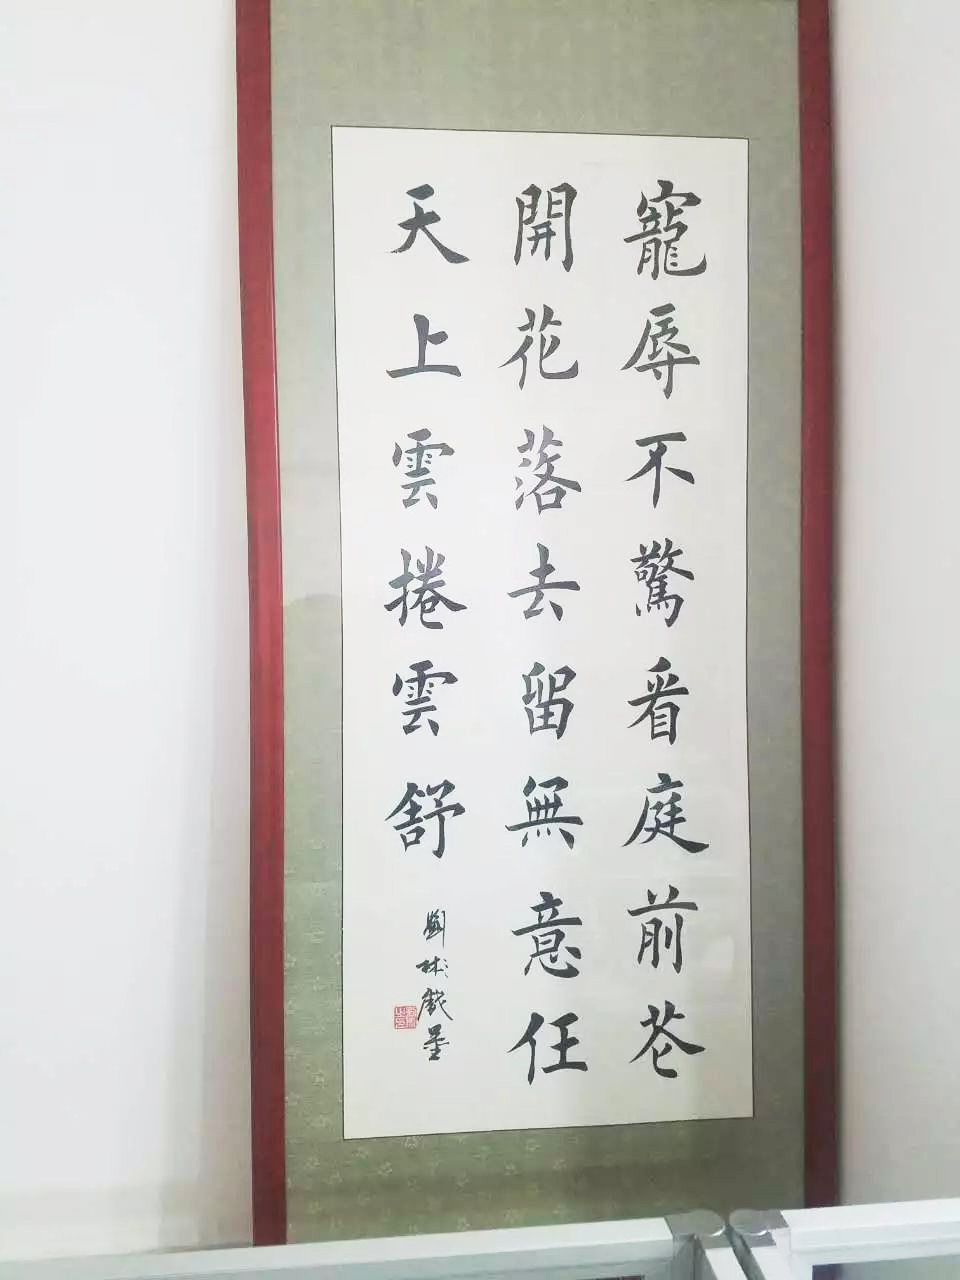 寵辱不驚看庭前花
開花落去留無意任
天上雲捲雲舒
劉彬戲墨